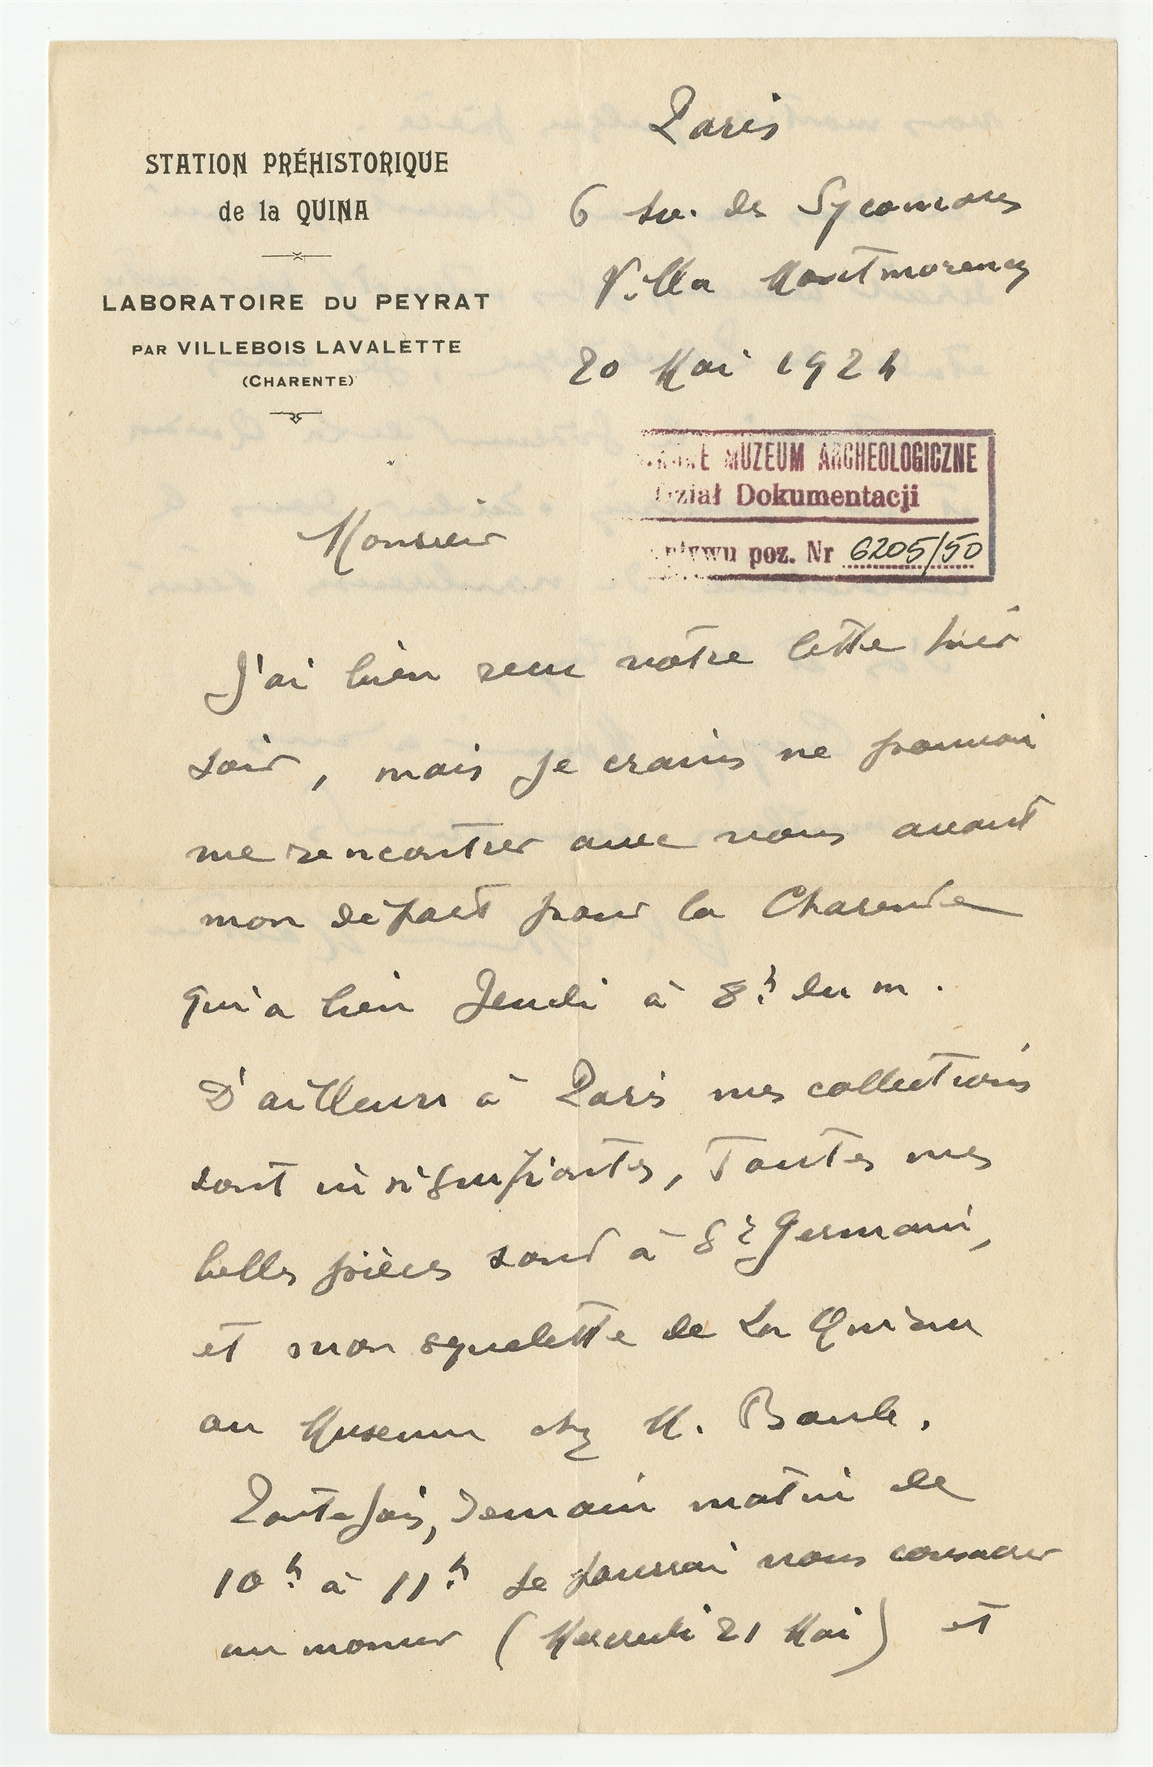 STATION PRÉHISTORIQUE
de la QUINA
LABORATOIRE DU PEYRAT
PAR VILLEBOIS LAVALETTE
(CHARENTE)
Paris
6 Av. des Sycomores
Villa Montmorency
20 Mai 1924
MUZEUM ARCHEOLOGICZNE
Dział Dokumentacji
poz. Nr 6205/50
Monsieur
J'ai bien reçu votre lettre hier
soir, mais je crains ne pouvoir
me rencontrer avec vous avant
mon départ pour la Charente
qui a lieu Jeudi à 8h du m.
D'ailleurs à Paris mes collections
sont insignifiantes, Toutes mes
belles pièces sont à St Germain,
et mon squelette de La Quina
au Museum chez M. Boule.
Toutefois, demain matin de
10h à 11h je pourrai vous consacrer
un moment (Mercredi 21 Mai) et